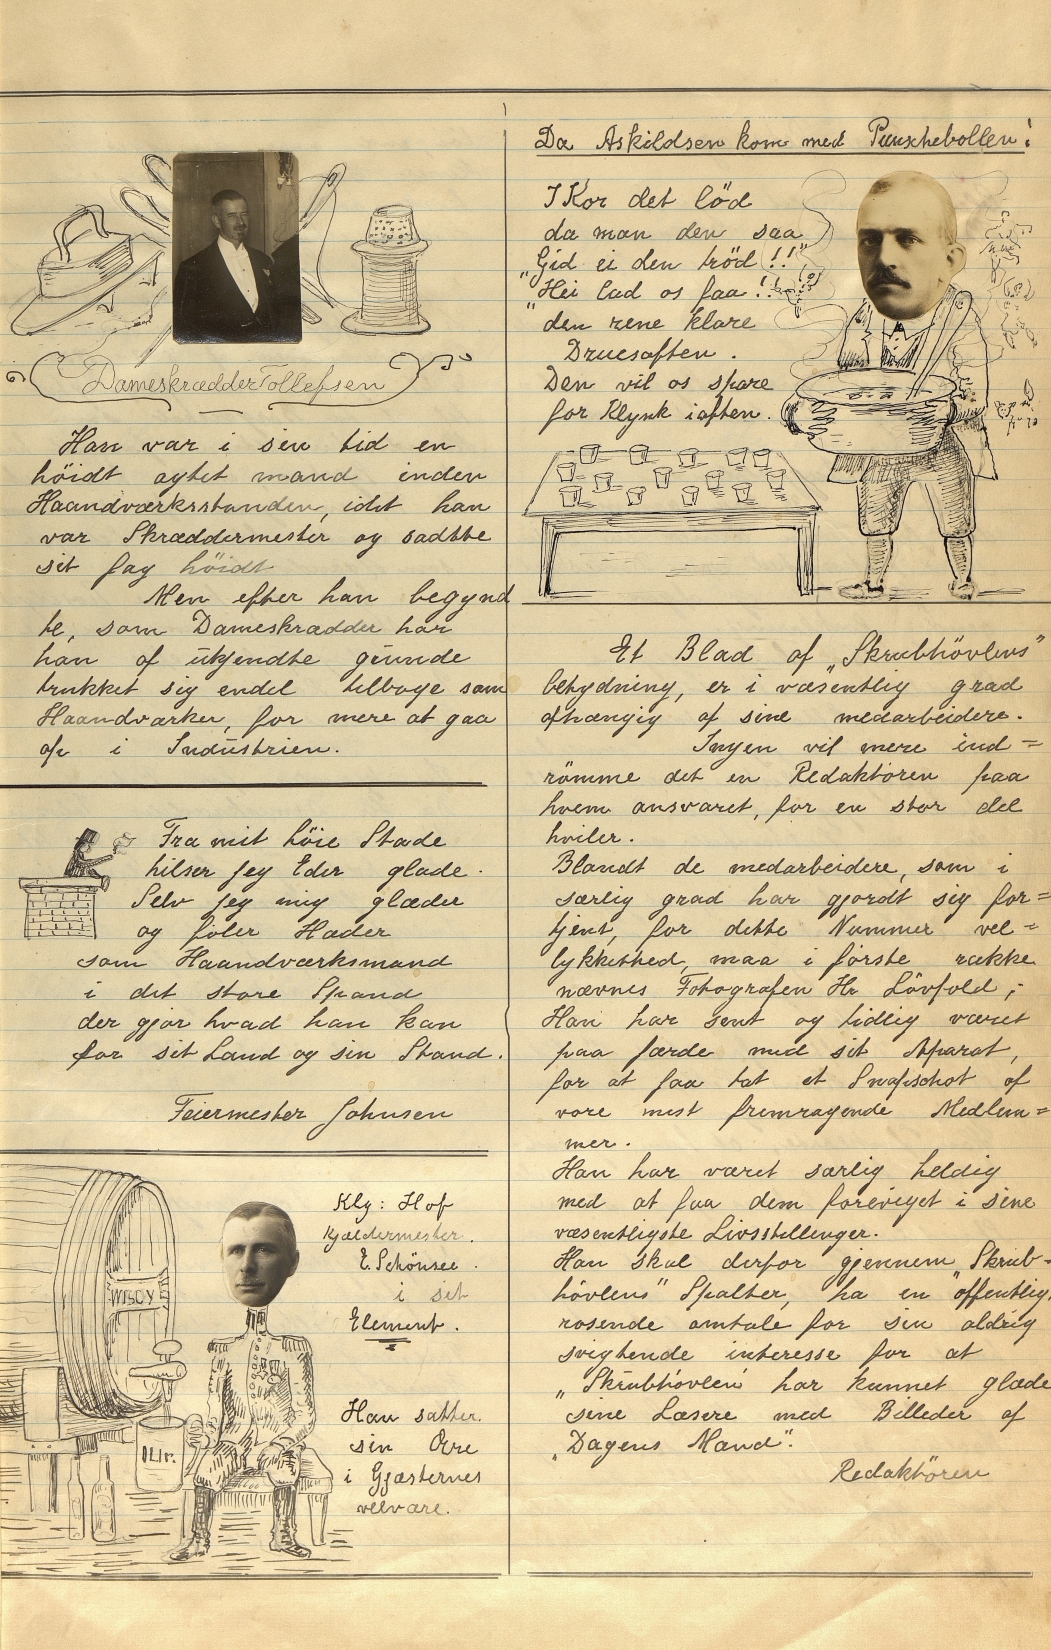 Dameskrædder Tollefsen
Han var i sin tid en
höidt agtet mand inden
Haandværksstanden, idet han
var Skræddermester og sadtte
sit fag höidt
Men efter han begynd
te, som Dameskrædder har
han af ukjendte grunde
trukket sig endel tilbage som
Haandværker, for mere at gaa
op i Industrien.
Fra mit höie Stade
hilser jeg Eder glade.
Selv jeg mig glæder
og föler Hæder
som Haandværksmand
i det store Spand
der gjör hvad han kan
for sit Land og sin Stand.
Feiermester Johnsen
Klg: Hof
Kjældermester.
E. Schönsee.
i sit
Element.
Han sætter
sin Ære
i Gjæsternes
velvære.
Da Askildsen kom med Punschebollen!
I Kor det löd
da man den saa
"Gid ei den tröd!!"
"Hei lad os faa!!
"den rene klare
Druesaften.
Den vil os spare
for Klynk iaften.
Et Blad af „Skrubhövlens"
betydning, er i væsentlig grad
afhængig af sine medarbeidere.
Ingen vil mere ind=
römme det en Redaktören paa
hvem ansvaret, for en stor del
hviler.
Blandt de medarbeidere, som i
særlig grad har gjordt sig for=
tjent, for dette Nummer vel=
lykkethed, maa i første række
nævnes Fotografen Hr Lövfold,;
Han har sent og tidlig været
paa færde med sit Aparat,
for at faa tat et Snapschot af
vore mest fremragende Medlem=
mer.
Han har været særlig heldig
med at faa dem foreviget i sine
væsentligste Livsstillinger.
Han skal derfor gjennem „Skrub-
hövlens" Spalter, ha en offentlig,
rosende omtale for sin aldrig
svigtende interesse for at
„Skrubhövlen" har kunnet glæde
sine Læsere med Billeder af
„Dagens Mænd".
Redaktören